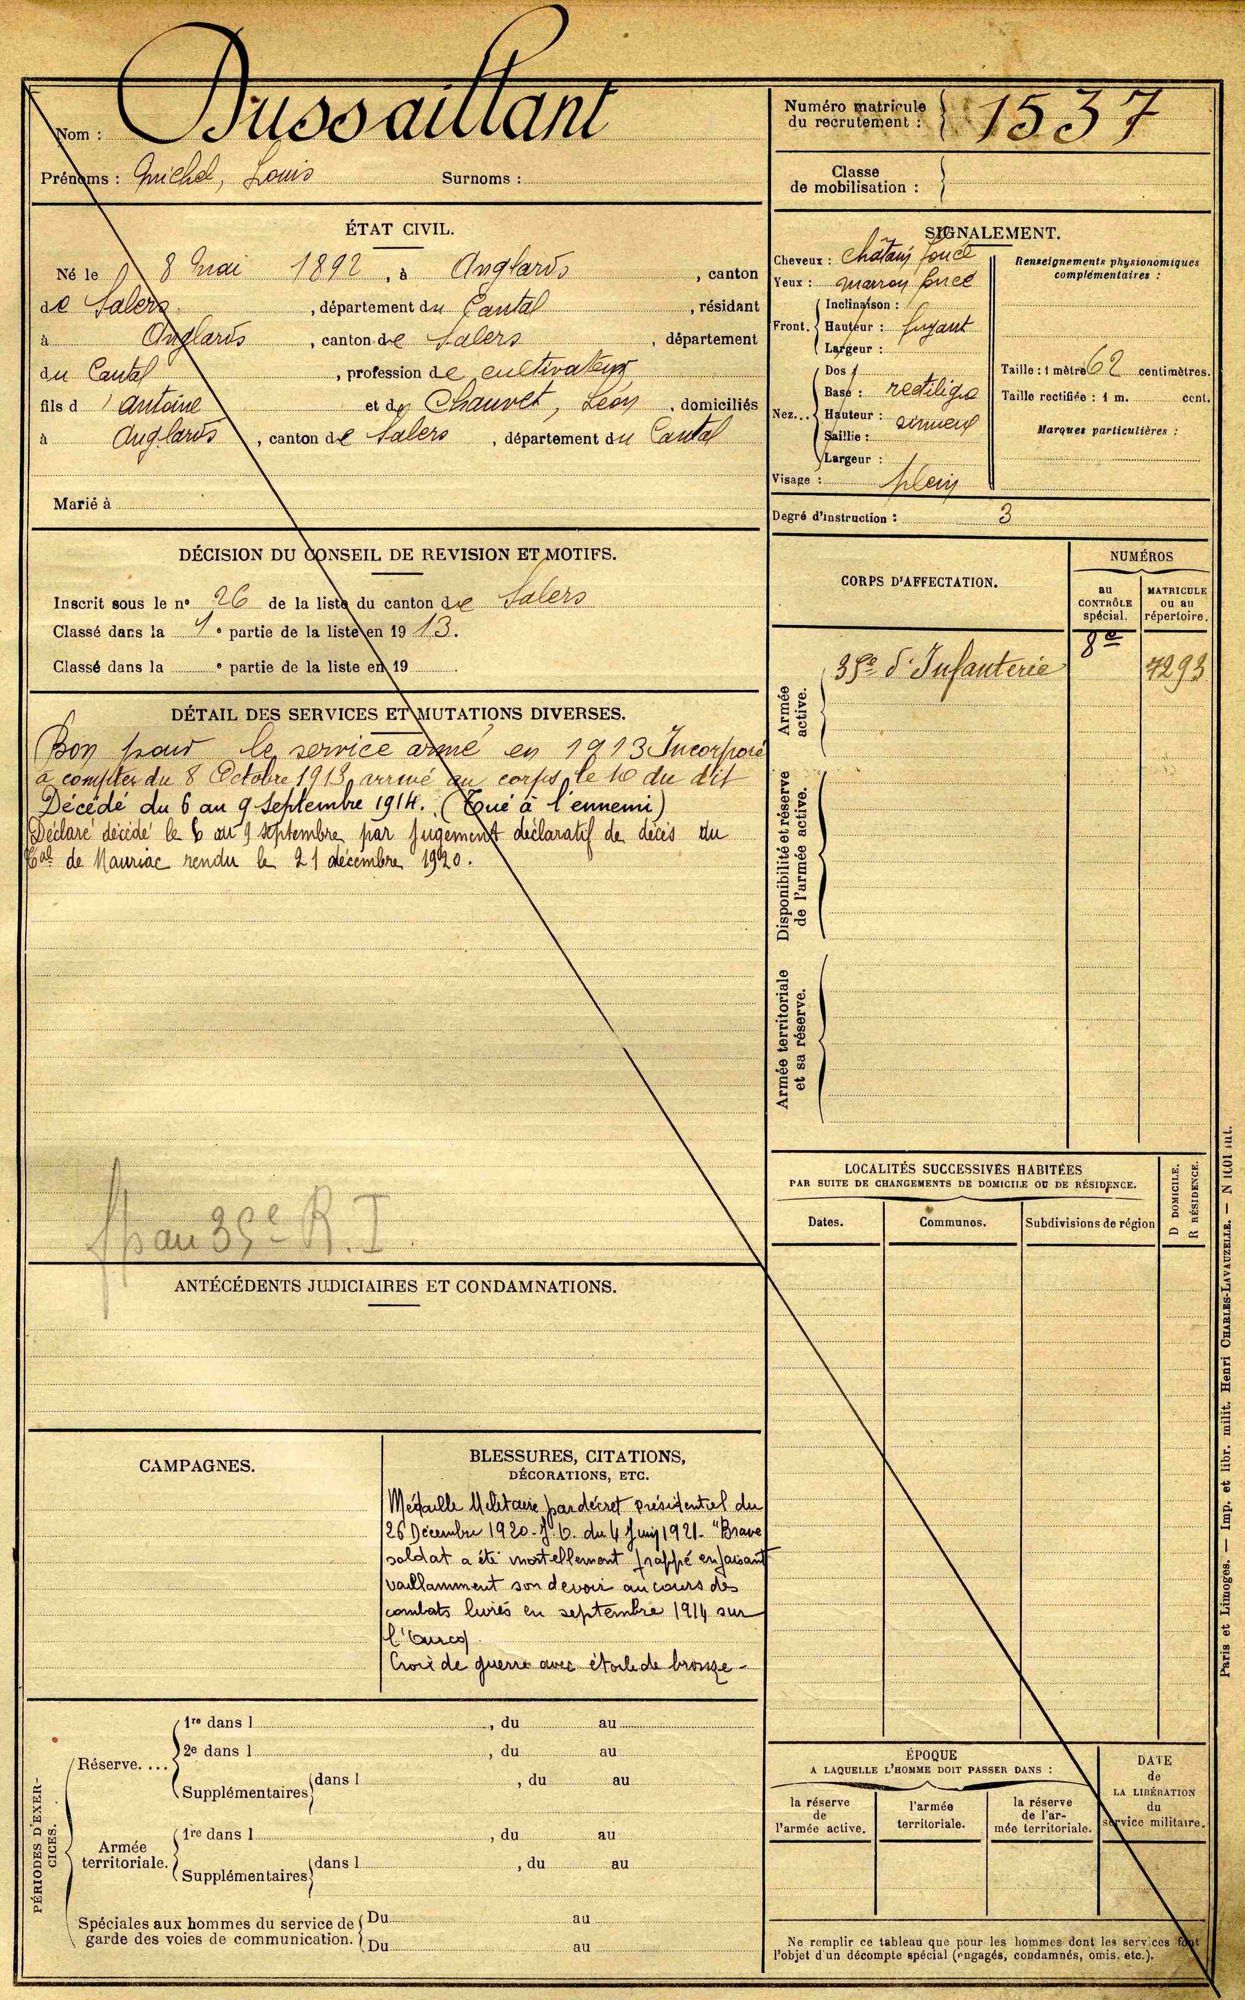 Nom : Dussaillant
Prénoms : Michel, Louis Surnoms :
Numéro matricule du recrutement : 1537
Classe de mobilisation :
ÉTAT CIVIL.
Né le 8 Mai 1892, à Anglards, canton
de Salers, département du Cantal, résidant
à Anglards, canton de Salers, département
du Cantal, profession de cultivateur
fils d'Antoine et de Chauvet, Léon, domiciliés
à Anglards, canton de Salers, département du Cantal
Marié à
SIGNALEMENT.
Cheveux : Châtain foncé
Yeux : marron foncé
Front. Inclinaison :
Hauteur : fuyant
Largeur :
Nez... Dos
Base : rectiligne
Hauteur : sinueux
Saillie :
Largeur :
Visage : plein
Renseignements physionomiques complémentaires :
Taille : 1 mètre 62 centimètres.
Taille rectifiée : 1 m. cent.
Marques particulières :
Degré d'instruction : 3
DÉCISION DU CONSEIL DE REVISION ET MOTIFS.
Inscrit sous le n° 26 de la liste du canton de Salers
Classé dans la 1e partie de la liste en 1913.
Classé dans la e partie de la liste en 19
CORPS D'AFFECTATION.
NUMÉROS
au CONTRÔLE spécial.
MATRICULE ou au répertoire.
Armée active.
35e d'Infanterie 8e 7293
Disponibilité et réserve de l'armée active.
Armée territoriale et sa réserve.
DÉTAIL DES SERVICES ET MUTATIONS DIVERSES.
Bon pour le service armé en 1913 Incorporé
à compter du 8 Octobre 1913 arrivé au corps le 10 du dit
Décédé du 6 au 9 septembre 1914. (Tué à l'ennemi)
Déclaré décédé le 6 au 9 septembre par jugement déclaratif de décès du
Tal de Mauriac rendu le 21 décembre 1920.
au 35e R.I.
LOCALITÉS SUCCESSIVES HABITÉES
PAR SUITE DE CHANGEMENTS DE DOMICILE OU DE RÉSIDENCE.
Dates. Communes. Subdivisions de région
D DOMICILE.
R RÉSIDENCE.
ANTÉCÉDENTS JUDICIAIRES ET CONDAMNATIONS.
CAMPAGNES.
BLESSURES, CITATIONS,
DÉCORATIONS, ETC.
Médaille Militaire par décret présidentiel du
26 Décembre 1920. J.O. du 4 Juin 1921. "Brave
soldat a été mortellement frappé en faisant
vaillamment son devoir au cours des
combats livrés en septembre 1914 sur
l'Ourcq
Croix de guerre avec étoile de bronze -
PÉRIODES D'EXERCICES.
Réserve....
1re dans l , du au
2e dans l , du au
Supplémentaires dans l , du au
Armée territoriale.
1re dans l , du au
Supplémentaires dans l , du au
Spéciales aux hommes du service de garde des voies de communication.
Du au
Du au
ÉPOQUE
A LAQUELLE L'HOMME DOIT PASSER DANS :
la réserve de l'armée active.
l'armée territoriale.
la réserve de l'armée territoriale.
DATE de LA LIBÉRATION du service militaire.
Ne remplir ce tableau que pour les hommes dont les services font
l'objet d'un décompte spécial (engagés, condamnés, omis, etc.).
Paris et Limoges. — Imp. et libr. milit. Henri CHARLES-LAVAUZELLE. —